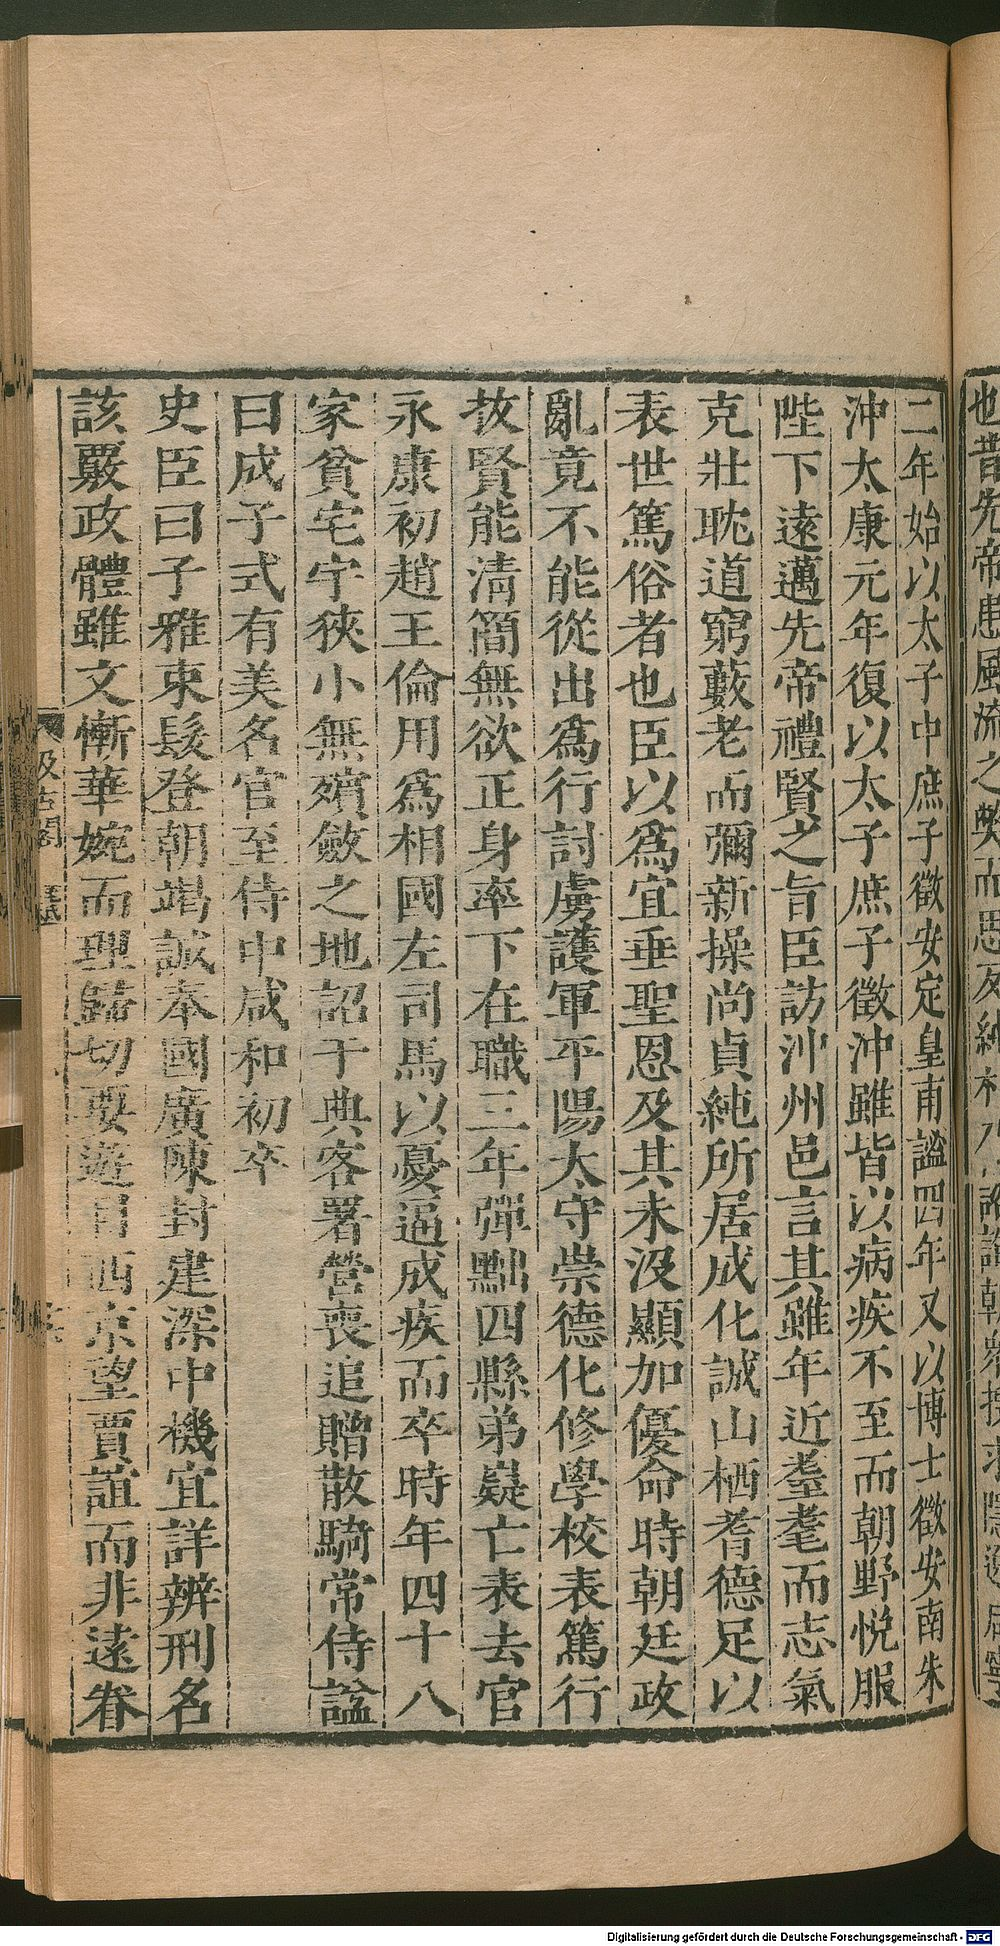 二年始以太子中庶子徵安定皇甫謐四年又以博士徵安南朱
沖太康元年復以太子庶子徵沖雖皆以病疾不至而朝野悅服
陛下遠邁先帝禮賢之旨臣訪沖州邑言其雖年近耋耄而志氣
克壯耽道窮藪老而彌新操尚貞純所居成化誠山栖耆德足以
表世篤俗者也臣以為宜垂聖恩及其未沒顯加優命時朝廷政
亂竟不能從出為行討虜護軍平陽太守崇德化修學校表篤行
拔賢能清簡無欲正身率下在職三年彈黜四縣弟嶷亡表去官
永康初趙王倫用為相國左司馬以憂逼成疾而卒時年四十八
家貧宅宇狹小無殯斂之地詔于典客署營喪追贈散騎常侍謚
曰成子式有美名官至侍中咸和初卒
史臣曰子雅束髮登朝竭誠奉國廣陳封建深中機宜詳辨刑名
該覈政體雖文慚華婉而理歸切要遊目西京望賈誼而非遠眷
汲古閣
Digitalisierung gefördert durch die Deutsche Forschungsgemeinschaft - DFG